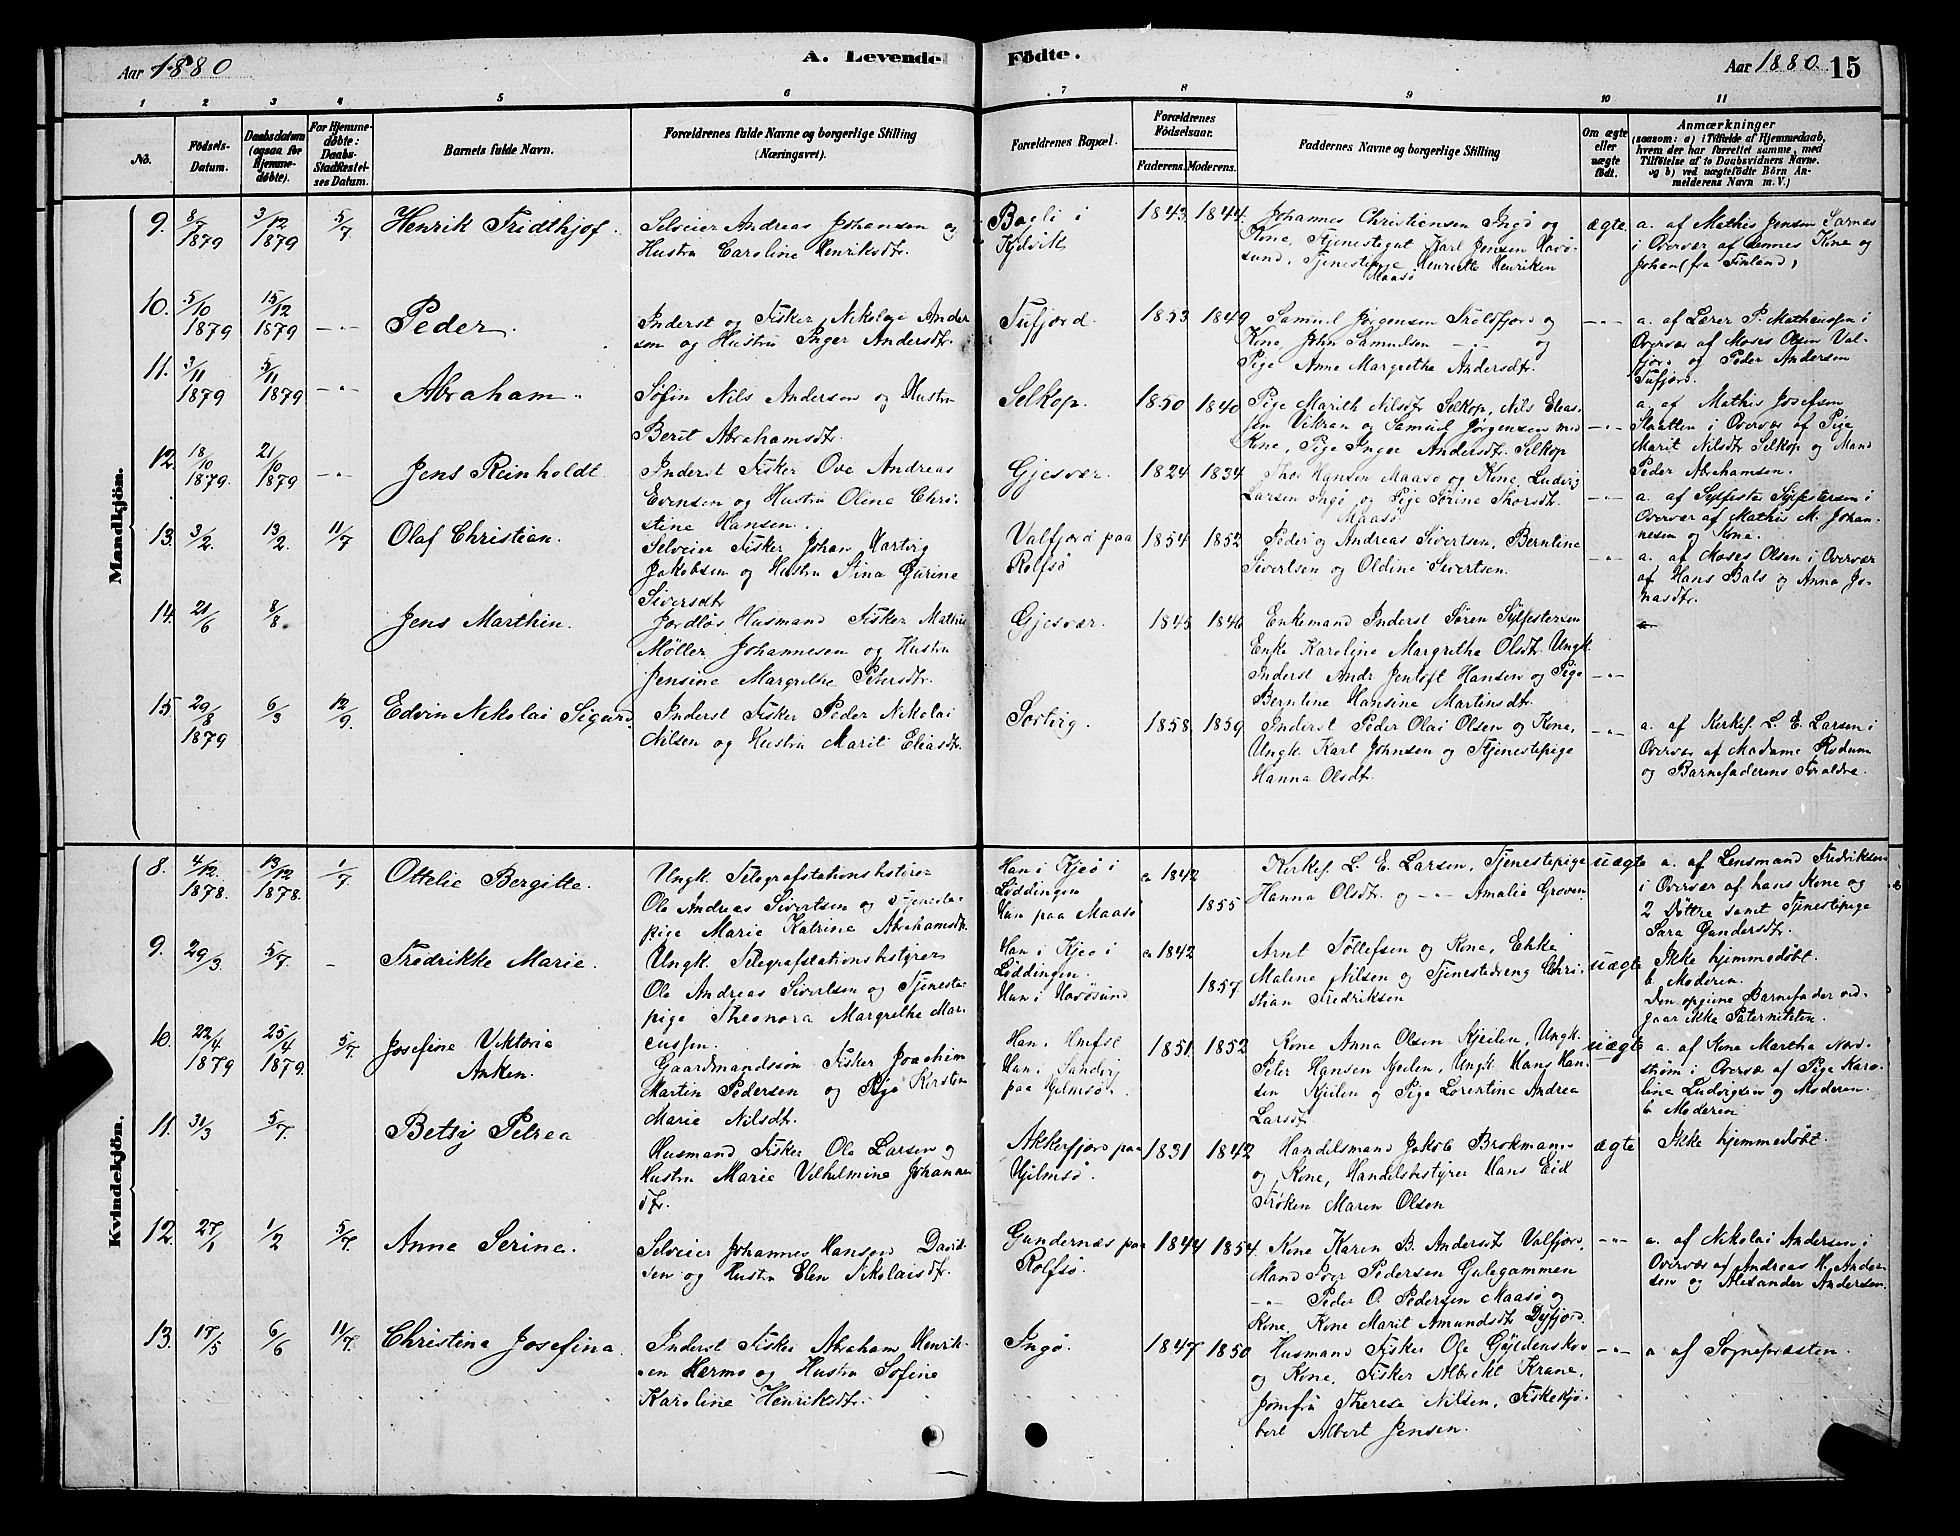 Aar 1880
A. Levende
Födte.
Aar 1880. 15
1 2 3 4 5 6 7 8 9 10 11
No.
Födsels-Datum.
Daabsdatum (ogsaa for Hjemme-døbte).
For Hjemme-døbte: Daabs-Stadfæstel-ses Datum.
Barnets fulde Navn.
Forældrenes fulde Navne og borgerlige Stilling (Næringsvei).
Forældrenes Bopæl.
Forældrenes Födselsaar.
Faderens. Moderens.
Faddernes Navne og borgerlige Stilling
Om ægte eller uægte födt.
Anmærkninger
(saasom: a) i Tilfælde af Hjemmedaab, hvem der har forrettet samme, med Tilföielse af to Daabsvidners Navne, og b) ved uægtefödte Börn An-melderens Navn m. V.)
Mandkjön.
9. 8/7 1879 3/12 1879 5/7 Henrik Fridthjof.
Selveier Andreas Johansen og
Hustru Caroline Henriksdtr.
i
Kjelvik
1843 1844
Johannes Christiansen Ingö og
Kone, Tjenestegut Karl Jensen Havö-
sund, Tjenestepige Henriette Henriksen
Maasö
ægte
a. af Mathis Jensen Sarnes
i Overvær af dennes Kone og
Johan (fra Finland)
10. 5/10 1879 15/12 1879 -"- Peder.
Inderst og Fisker Nikolai Ander
sen og Hustru Inger Andersdtr.
Tufjord.
1853 1849
Samuel Jörgensen Troldfjord og
Kone, John Samuelsen -"- og
Pige Anne Margrethe Andersdtr.
-"-
a. af Lærer P. Mathiesen i
Overvær af Moses Olsen Val-
fjord og Peder Andersen
Tufjord.
11. 3/11 1879 5/11 1879 -"- Abraham.
Søfin Nils Andersen og Hustru
Berit Abrahamsdtr.
Selkop.
1850 1840
Pige Marith Nilsdtr Selkop, Nils Elias-
sen Vikran og Samuel Jörgensen med
Kone, Pige Inger Andersdtr. Selkop
-"-
a. af Mathis Josefsen
Slaatten i Overvær af Pige
Marit Nilsdtr Selkop og Mand
Peder Abrahamsen.
12. 18/10 1879. 21/10 1879 -"- Jens Reinholdt
Inderst Fisker Ove Andreas
Evensen og Hustru Oline Chri-
stine Hansen.
Gjesvær.
1824 1834
Thor Hansen Maasö og Kone, Ludvig
Larsen Ingö og Pige Sörine Thorsdt.
Maasö
-"-
a. af Sylfester Sylfestersen i
Overvær af Mathis M. Johan-
nesen og Kone.
13. 3/2. 13/2. 11/7 Olaf Christian.
Selveier Fisker Johan Hartvig
Jakobsen og Hustru Stina Gurine
Siversdtr
Valfjord paa
Rolfsö
1854 1852
Peder og Andreas Sivertsen, Berntine
Sivertsen og Oldine Sivertsen.
-"-
a. af Moses Olsen i Overvær
af Hans Bals og Anna Jo-
nasdtr.
14. 21/6 8/8. Jens Marthin.
Jordløs Husmand Fisker Mathis
Möller Johannesen og Hustru
Jensine Margrethe Petersdtr.
Gjesvær.
1845 1846
Enkemand Inderst Sören Sylfestersen
Enke Karoline Margrethe Olsdt. Ungk.
Inderst Andr Jentoft Hansen og Pige
Berntine Hansine Martinsdt.
-"-
a
15 29/8 1879 6/3 12/9. Edvin Nikolai Sigurd
Inderst Fisker Peder Nikolai
Nilsen og Hustru Marit Eliasdtr.
Sortvig.
1858. 1859
Inderst Peder Olai Olsen og Kone,
Ungk. Karl Johnsen og Tjenestepige
Hanna Olsdt.
-"-
a. af Kirkes. L. E. Larsen i
Overvær af Madame Rodum
og Barnefaderens Forældre.
Kvindekjön.
8. 4/12. 1878. 13/12 1878. 1/7 Ottelie Bergitte.
Ungk. Telegrafstationsbestyrer
Ole Andreas Sivertsen og Tjeneste-
pige Marie Katrine Abrahamsdt.
Han i Kjeö i
Löddingen
Hun paa Maasö
c. 1842
1855
Kirkes. L. E. Larsen, Tjenestepige
Hanna Olsdt. og -"- Amalia Groven
uægte
a. af Lensmand Fredriksen
i Overvær af hans Kone og
2 Döttre samt Tjenestepige
Sara Gundersdtr.
9. 29/3. 5/7. - Fredrikke Marie.
Ungk. Telegrafstationsbestyrer
Ole Andreas Sivertsen og Tjeneste-
pige Theonora Margrethe Mar-
cussen.
Han i Kjeö i
Löddingen.
Hun i Havösund
c 1842
1857
Arnt Tollefsen og Kone, Enke
Malene Nilsen og Tjenestedreng Chri-
stian Fredriksen
uægte
Ikke hjemmedöbt.
b. Moderen.
Den opgivne Barnefader ved-
gaar ikke Paterniteten.
10. 22/4 1879 25/4 1879. 5/7. Josefine Viktoria
Anken.
Gaardmandssøn Fisker Joachim
Martin Pedersen og Pige Kirsten
Marie Nilsdtr.
Han i
Hun i Sandvig
paa Hjelmsö.
1851. 1852
Kone Anna Olsen Kjeilen, Ungk.
Peter Hansen Kjeilen, Ungk. Hans Han-
sen Kjeilen og Pige Lorentine Andrea
Larsdt.
uægte
a. af Kone Martha Nord-
ström i Overvær af Pige Karo-
line Ludvigsen og Moderen.
b. Moderen
11. 31/3 5/7. Betsy Petrea
Husmand Fisker Ole Larsen og
Hustru Marie Vilhelmine Johannes
dtr.
Akkerfjord paa
Hjelmsö.
1831 1842
Handelsmand Jakob Brokmann
og Kone, Handelsbestyrer Hans Eid
Fröken Maren Olsen
ægte
Ikke hjemmedöbt.
12. 27/1 1/2 5/7. Anne Serine.
Selveier Johannes Hansen David-
sen og Hustru Elen Nikolaisdtr.
Gundernæs paa
Rolfsö.
1844 1854.
Kone Karen B. Andersdt Valfjord,
Mand Iver Pedersen Gulegammen
-"- Peder O. Pedersen Maasö og
Kone, Kone Marit Amundsdt Dyfjord.
-"-
a. af Nikolai Andersen i
Overvær af Andreas H. Ander
sen og Alexander Andersen.
13. 17/5 6/6 11/7. Christina Josefina.
Inderst Fisker Abraham Henrik-
sen Hermo og Hustru Sofine
Karoline Henriksdtr.
Ingö.
1847 1850
Husmand Fisker Ole Gyldenskov
og Kone, Fisker Albrekt Krane,
Jomfru Therese Nilsen, Fiskekjö-
berl Albert Jensen.
-"-
a. af Sognepræsten.